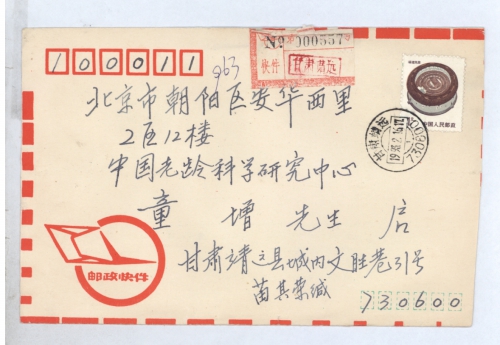 100011
963
No 000557
快件 甘肃靖远
中国人民邮政
北京市朝阳区安华西里
2区12楼
中国老龄科学研究中心
童增先生 启
邮政快件
甘肃靖远县城内文胜巷31号
苗其荣缄
730600